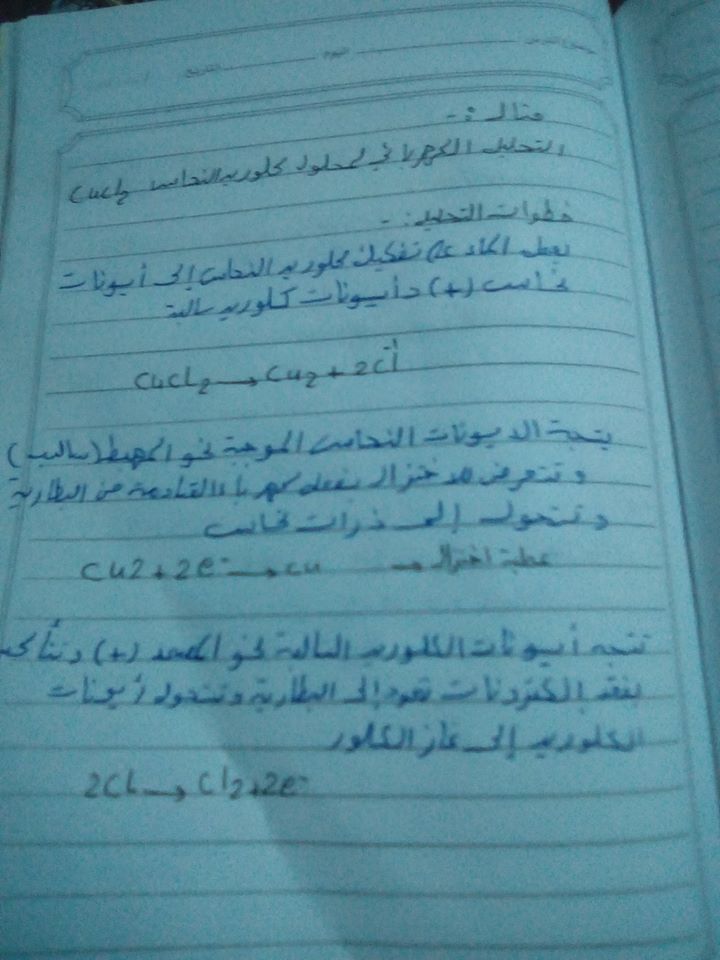 موضوع الدرس اليوم التاريخ
مثال :-
التحليل الكهربائي لمحلول كلوريد النحاس CuCl2
خطوات التحليل :-
يعمل الماء على تفكيك كلوريد النحاس إلى أيونات
نحاس (+) وأيونات كلوريد سالبة
CuCl2 → Cu2 + 2Cl-
يتجة الايونات النحاس الموجبة نحو المهبط (سالب)
وتتعرض للاختزال بفعل كهرباء القادمة من البطارية
وتتحول إلى ذرات نحاس
Cu2 + 2e- → Cu → عملية اختزال
تتجه أيونات الكلوريد السالبة نحو المصعد (+) وتتأكسد
بفقد إلكترونات تعود إلى البطارية وتتحول أيونات
الكلوريد إلى غاز الكلور
2Cl → Cl2 + 2e-